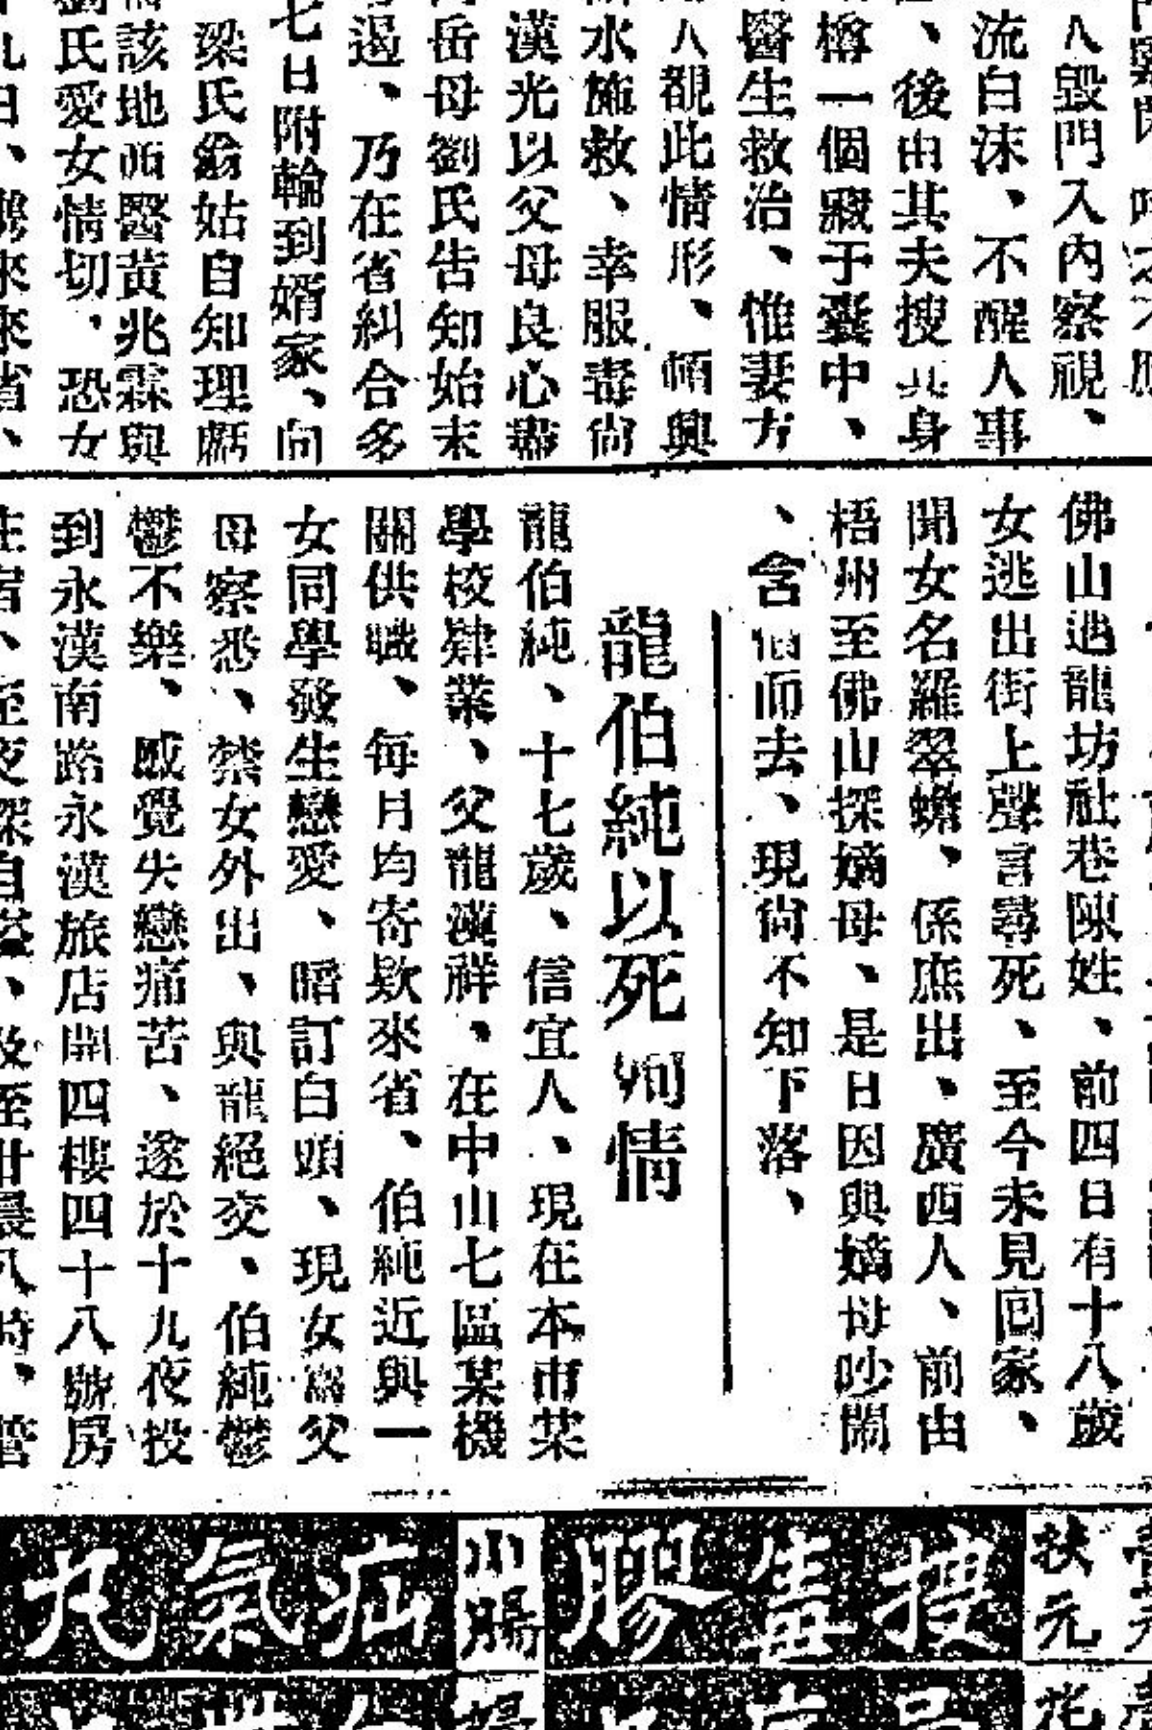 八毀門入內察視、
流白沫、不醒人事
、後由其夫搜其身
樽一個藏于囊中、
醫生救治、惟妻方
八覩此情形、頓興
水施救、幸服毒尙
漢光以父母良心喪
岳母劉氏告知始末
過、乃在省糾合多
七日附輪到婿家、向
梁氏翁姑自知理虧
該地西醫黃兆霖與
劉氏愛女情切、恐女
九日、來省、
佛山過龍坊社巷陳姓、前四日有十八歲
女逃出街上聲言尋死、至今未見回家、
聞女名羅翠蟾、係庶出、廣西人、前由
梧州至佛山探嫡母、是日因與嫡母吵鬧
、含恨而去、現尙不知下落、
龍伯純以死殉情
龍伯純、十七歲、信宜人、現在本市某
學校肄業、父龍漢祥、在中山七區某機
關供職、每月均寄欵來省、伯純近與一
女同學發生戀愛、暗訂白頭、現女爲父
母察悉、禁女外出、與龍絕交、伯純鬱
鬱不樂、感覺失戀痛苦、遂於十九夜投
到永漢南路永漢旅店開四樓四十八號房
住宿、至夜深自縊、及至廿晨八時、管
扶元
搜毒膠
小腸
疝氣丸